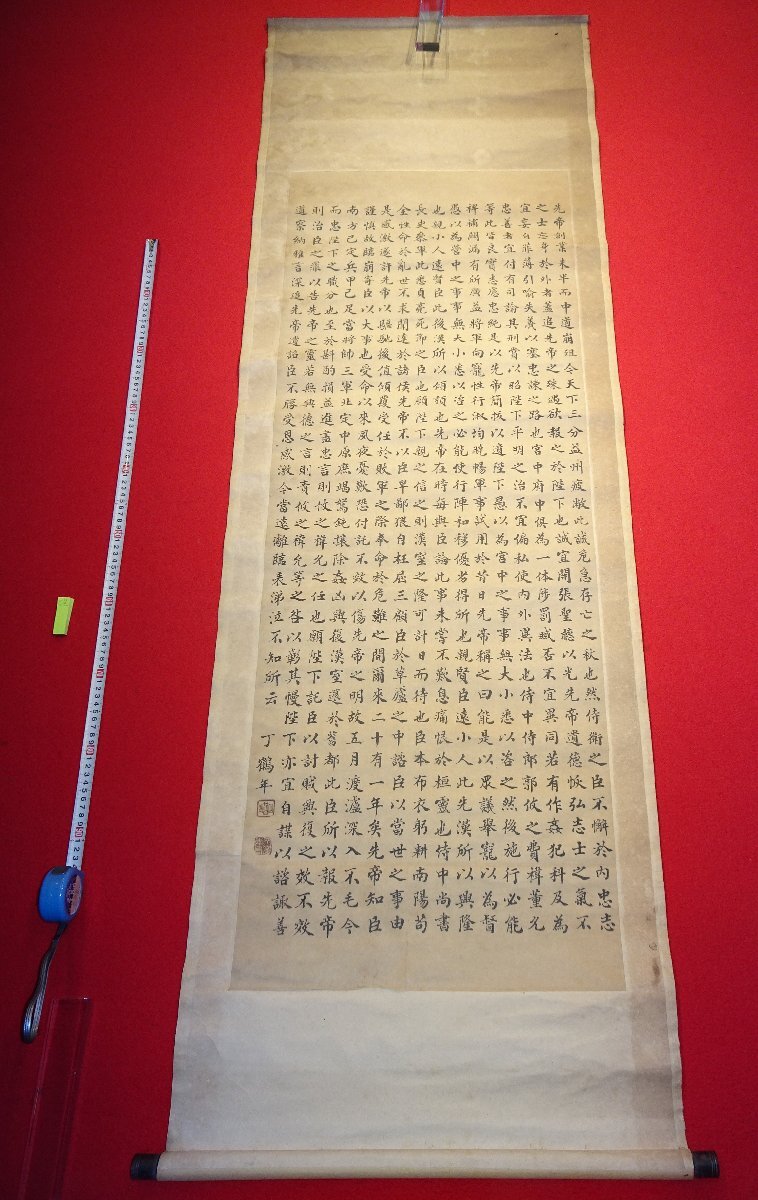 先帝創業未半而中道崩殂今天下三分益州疲敝此誠危急存亡之秋也然侍衛之臣不懈於內忠志
之士忘身於外者蓋追先帝之殊遇欲報之於陛下也誠宜開張聖聽以光先帝遺德恢弘志士之氣不
宜妄自菲薄引喻失義以塞忠諫之路也宮中府中俱為一体陟罰臧否不宜異同若有作姦犯科及為
忠善者宜付有司論其刑賞以昭陛下平明之治不宜偏私使內外異法也侍中侍郎郭攸之費禕董允
等此皆良實志慮忠純是以先帝簡拔以遺陛下愚以為宮中之事事無大小悉以咨之然後施行必能
裨補闕漏有所廣益將軍向寵性行淑均曉暢軍事試用於昔日先帝稱之曰能是以眾議舉寵以為督
愚以為營中之事事無大小悉以咨之必能使行陣和穆優劣得所也親賢臣遠小人此先漢所以興隆
也親小人遠賢臣此後漢所以傾頹也先帝在時每與臣論此事未嘗不歎息痛恨於桓靈也侍中尚書
長史參軍此悉貞亮死節之臣也願陛下親之信之則漢室之隆可計日而待也臣本布衣躬耕南陽苟
全性命於亂世不求聞達於諸侯先帝不以臣卑鄙猥自枉屈三顧臣於草廬之中諮臣以當世之事由
是感激遂許先帝以驅馳後值傾覆受任於敗軍之際奉命於危難之間爾來二十有一年矣先帝知臣
謹慎故臨崩寄臣以大事也受命以來夙夜憂歎恐付託不效以傷先帝之明故五月渡瀘深入不毛今
南方已定兵甲已足當將帥三軍北定中原庶竭駑鈍攘除姦凶興復漢室還於舊都此臣所以報先帝
而忠陛下之職分也至於斟酌損益進盡忠言則攸之禕允之任也願陛下託臣以討賊興復之效不效
則治臣之罪以告先帝之靈若無興德之言則責攸之禕允等之咎以彰其慢陛下亦宜自謀以諮諏善
道察納雅言深追先帝遺詔臣不勝受恩感激今當遠離臨表涕泣不知所云
丁鶴年